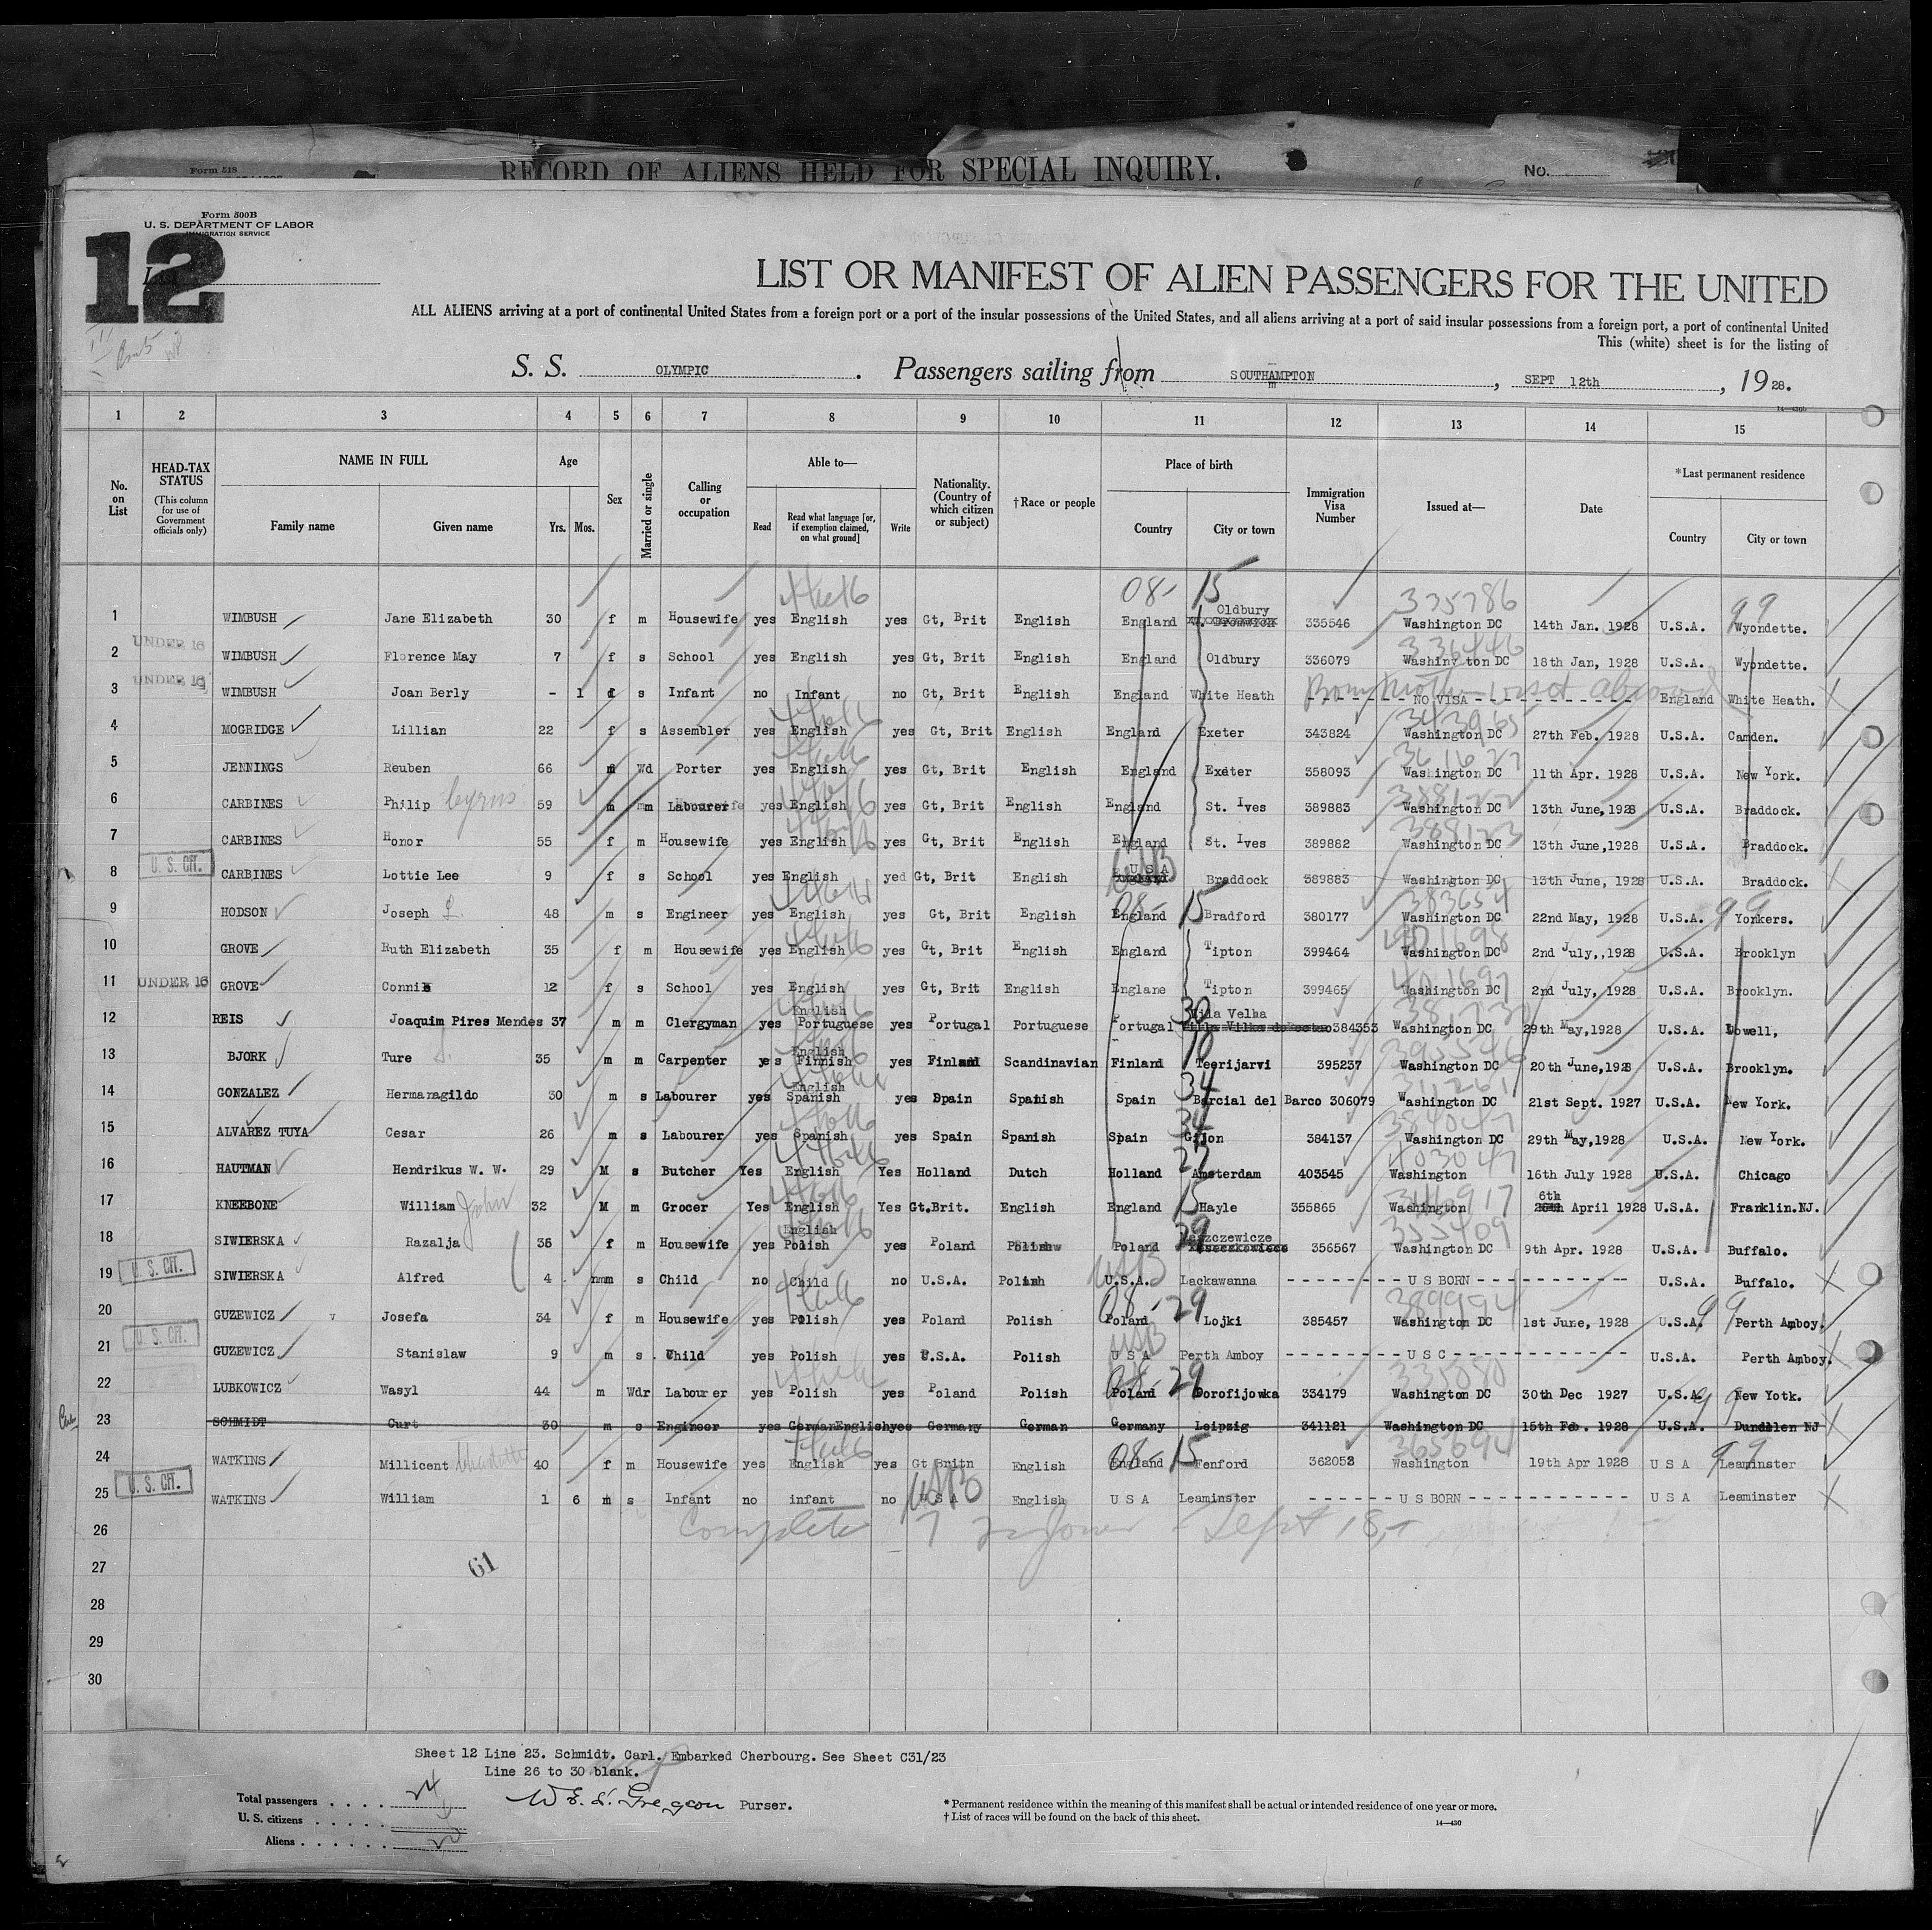 Form 518
RECORD OF ALIENS HELD FOR SPECIAL INQUIRY.
No.
Form 500B
U. S. DEPARTMENT OF LABOR
IMMIGRATION SERVICE
12
List
LIST OR MANIFEST OF ALIEN PASSENGERS FOR THE UNITED
ALL ALIENS arriving at a port of continental United States from a foreign port or a port of the insular possessions of the United States, and all aliens arriving at a port of said insular possessions from a foreign port, a port of continental United
This (white) sheet is for the listing of
S. S. OLYMPIC . Passengers sailing from SOUTHAMPTON , SEPT 12th , 19 28.
14—430
1 2 3 4 5 6 7 8 9 10 11 12 13 14 15
No. on List
HEAD-TAX STATUS (This column for use of Government officials only)
NAME IN FULL
Family name Given name
Age
Yrs. Mos.
Sex
Married or single
Calling or occupation
Able to—
Read Read what language [or, if exemption claimed, on what ground] Write
Nationality. (Country of which citizen or subject)
†Race or people
Place of birth
Country City or town
Immigration Visa Number
Issued at—
Date
*Last permanent residence
Country City or town
08- 15 335786 99
1 WIMBUSH Jane Elizabeth 30 f m Housewife yes English yes Gt, Brit English England Oldbury 335546 Washington DC 14th Jan. 1928 U.S.A. Wyondette.
UNDER 16 336446
2 WIMBUSH Florence May 7 f s School yes English yes Gt, Brit English England Oldbury 336079 Washington DC 18th Jan, 1928 U.S.A. Wyondette.
UNDER 16
3 WIMBUSH Joan Berly - 1 f s Infant no Infant no Gt, Brit English England White Heath NO VISA England White Heath.
4 MOGRIDGE Lillian 22 f s Assembler yes English yes Gt, Brit English England Exeter 343824 Washington DC 27th Feb. 1928 U.S.A. Camden.
5 JENNINGS Reuben 66 m Wd Porter yes English yes Gt, Brit English England Exeter 358093 Washington DC 11th Apr. 1928 U.S.A. New York.
6 CARBINES Philip Cyrus 59 m m Labourer yes English yes Gt, Brit English England St. Ives 389883 Washington DC 13th June,1928 U.S.A. Braddock.
388123
7 CARBINES Honor 55 f m Housewife yes English yes Gt, Brit English England St. Ives 389882 Washington DC 13th June,1928 U.S.A. Braddock.
U. S. CIT. USB
8 CARBINES Lottie Lee 9 f s School yes English yed Gt, Brit English U S A Braddock 389883 Washington DC 13th June, 1928 U.S.A. Braddock.
08- 15 383654 99
9 HODSON Joseph L. 48 m s Engineer yes English yes Gt, Brit English England Bradford 380177 Washington DC 22nd May, 1928 U.S.A. Yonkers.
401698
10 GROVE Ruth Elizabeth 35 f m Housewife yes English yes Gt, Brit English England Tipton 399464 Washington DC 2nd July,,1928 U.S.A. Brooklyn
401697
11 UNDER 16 GROVE Connie 12 f s School yes English yes Gt, Brit English Englane Tipton 399465 Washington DC 2nd July, 1928 U.S.A. Brooklyn.
30
12 REIS Joaquim Pires Mendes 37 m m Clergyman yes English Portuguese yes Portugal Portuguese Portugal Vila Velha 384353 Washington DC 29th May,1928 U.S.A. Lowell,
10 395546
13 BJORK Ture 35 m m Carpenter yes English Finnish yes Finland Scandinavian Finland Teerijarvi 395237 Washington DC 20th June,1928 U.S.A. Brooklyn.
34 311261
14 GONZALEZ Hermanagildo 30 m s Labourer yes English Spanish yes Spain Spanish Spain Barcial del Barco 306079 Washington DC 21st Sept. 1927 U.S.A. New York.
34 384047
15 ALVAREZ TUYA Cesar 26 m s Labourer yes Spanish yes Spain Spanish Spain Gijon 384137 Washington DC 29th May,1928 U.S.A. New York.
27 403047
16 HAUTMAN Hendrikus W. W. 29 M s Butcher Yes English Yes Holland Dutch Holland Amsterdam 403545 Washington 16th July 1928 U.S.A. Chicago
15 346917
17 KNEEBONE William John 32 M m Grocer Yes English Yes Gt.Brit. English England Hayle 355865 Washington 6th April 1928 U.S.A. Franklin.NJ.
29 355409
18 SIWIERSKA Razalja 36 f m Housewife yes English Polish yes Poland Polish Poland 356567 Washington DC 9th Apr. 1928 U.S.A. Buffalo.
U. S. CIT. USB
19 SIWIERSKA Alfred 4 m s Child no Child no U.S.A. Polish U.S.A. Lackawanna U S BORN U.S.A. Buffalo.
08- 29 389994 99
20 GUZEWICZ Josefa 34 f m Housewife yes Polish yes Poland Polish Poland Lojki 385457 Washington DC 1st June, 1928 U.S.A. Perth Amboy.
U. S. CIT. USB
21 GUZEWICZ Stanislaw 9 m s Child yes Polish yes U.S.A. Polish U S A Perth Amboy U S C U.S.A. Perth Amboy.
08- 29 335080 99
22 LUBKOWICZ Wasyl 44 m Wdr Labourer yes Polish yes Poland Polish Poland Dorofijowka 334179 Washington DC 30th Dec 1927 U.S.A. New Yotk.
23 SCHMIDT Curt 30 m s Engineer yes German English yes Germany German Germany Leipzig 341121 Washington DC 15th Feb. 1928 U.S.A. Dundllen NJ
08- 15 365694 99
24 WATKINS Millicent Charlotte 40 f m Housewife yes English yes Gt Britn English England Fenford 362052 Washington 19th Apr 1928 U S A Leaminster
U. S. CIT. USB
25 WATKINS William 1 6 m s Infant no infant no U S A English U S A Leaminster U S BORN U S A Leaminster
26 Complete Sept 18,
27 61
28
29
30
Sheet 12 Line 23. Schmidt. Carl. Embarked Cherbourg. See Sheet C31/23
Line 26 to 30 blank.
Total passengers 24
U. S. citizens
Aliens
Purser.
* Permanent residence within the meaning of this manifest shall be actual or intended residence of one year or more.
† List of races will be found on the back of this sheet.
14—430